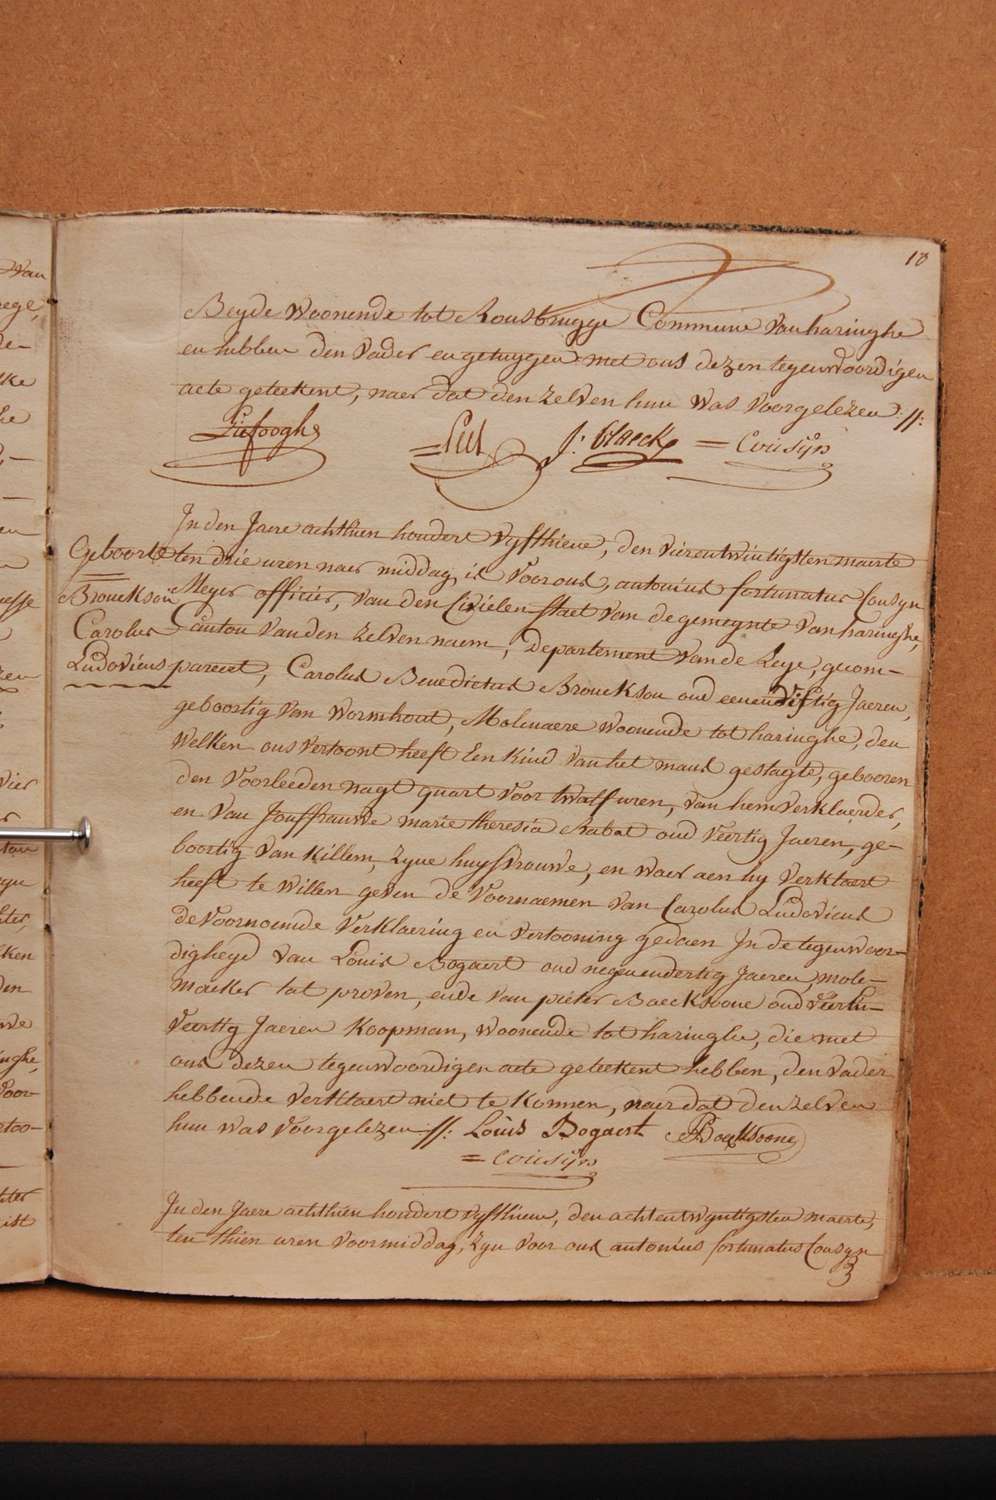 10
Beyde Woonende tot Rousbrugge Commune van haringhe
en hebben den vader en getuygen met ons dezen tegenwoordigen
acte geteekent, naer dat den zelven hun was voorgelezen //:
Liefooghe = Pill J: Claeck = Cousijn
In den Jaere achthien hondert vyfthiene, den vierentwintigsten maerte
Geboorte ten drie uren naer middag is voor ons, antonius fortunatus Cousyn
Brouckson Meyer officier, van den Civielen staet van de gemeynte van haringhe,
Carolus Canton van den zelven naem, Departement van de Leye, gecom-
Ludovicus pareert, Carolus Benedictus Brouckson oud eenenvyftig Jaeren,
geboortig van Wormhout, Molenaere woonende tot haringhe, den
welken ons vertoont heeft een kind van het mans geslagte, gebooren
den voorleeden nagt quart voor twalf uren, van hem verklaerder,
en van Jouffrauwe marie theresia Rabat oud veertig Jaeren, ge-
boortig van Killem, zyne huysvrouwe, en waer aen hy verklaert
heeft te willen geven de voornaemen van Carolus Ludovicus
de voornoemde verklaering en vertooning gedaen In de tegenwoor-
digheyd van Louis Bogaert oud negenendertig Jaeren, mole-
maeker tot proven, ende van pieter Baecksoone oud
veertig Jaeren koopman, woonende tot haringhe, die met
ons dezen tegenwoordigen acte geteekent hebben, den vader
hebbende verklaert niet te konnen, naer dat den zelven
hun was voorgelezen //: Louis Bogaert
= Cousijn
In den Jaere achthien hondert vyfthiene, den achtentwyntigsten maerte,
ten thien uren voormiddag, zyn voor ons antonius fortunatus Cousyn